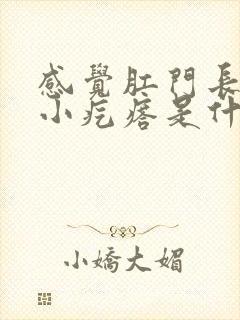 感覺肛門長
小疙瘩是什
小嬌大媚